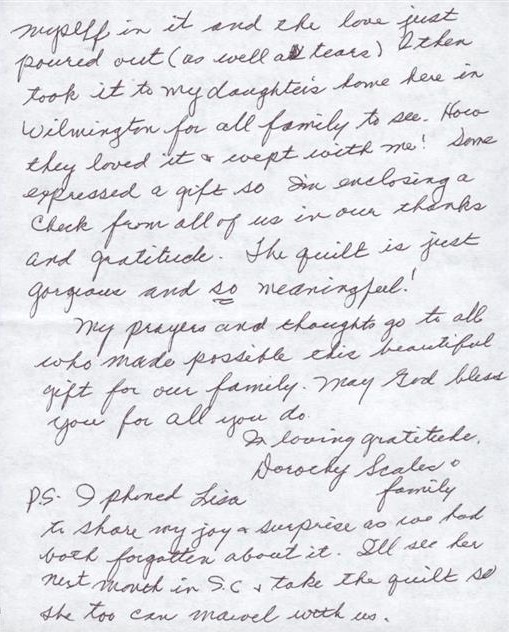 myself in it and the love just
poured out (as well as tears) I then
took it to my daughter's home here in
Wilmington for all family to see. How
they loved it & wept with me! Some
expressed a gift so I'm enclosing a
check from all of us in our thanks
and gratitude. The quilt is just
gorgeous and so meaningful!
My prayers and thoughts go to all
who made possible this beautiful
gift for our family. May God bless
you for all you do.
In loving gratitude,
Dorothy Scales &
family
P.S. I phoned Lisa
to share my joy & surprise as we had
both forgotten about it. I'll see her
next month in S.C & take the quilt so
she too can marvel with us.